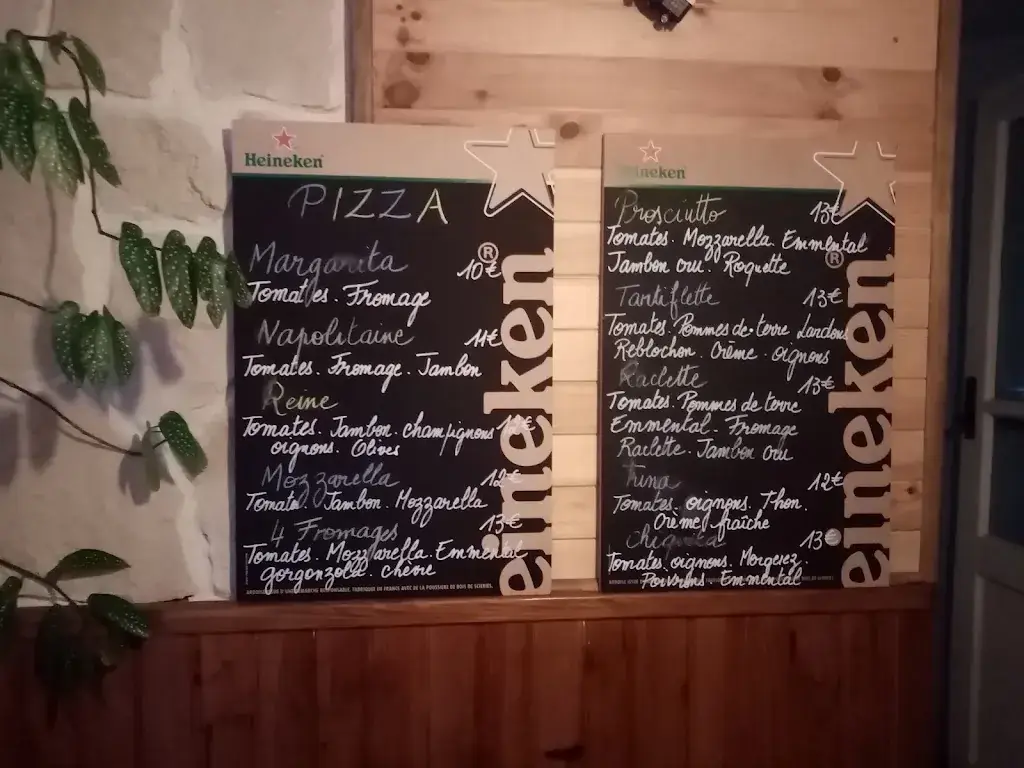 Heineken
PIZZA
Margarita 10€
Tomates. Fromage
Napolitaine 11€
Tomates. Fromage. Jambon
Reine
Tomates. Jambon. champignons 12€
oignons. Olives
Mozzarella 12€
Tomate. Jambon. Mozzarella
4 Fromages 13€
Tomates. Mozzarella. Emmental
gorgonzola chèvre
eineken®
Heineken
Prosciutto 13€
Tomates. Mozzarella. Emmental
Jambon cru. Roquette
Tartiflette 13€
Tomates. Pommes de terre Lardons
Reblochon. Crème. oignons
Raclette 13€
Tomates. Pommes de terre
Emmental. Fromage
Raclette. Jambon cru
Tuna 12€
Tomates. oignons. Thon.
Crème fraîche
13€
Tomates. oignons. Merguez
Poivrons Emmental
eineken®